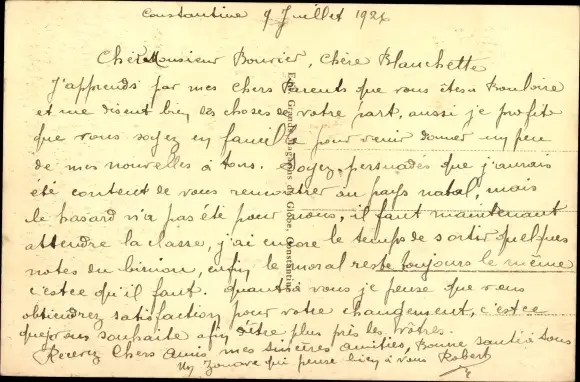 Constantine 9 Juillet 1926
Cher Monsieur Bouvier, Chère Blanchette
J'apprends par mes Chers Parents que vous êtes a Bouloire
et me disent bien des choses de votre part, aussi je profit
que vous soyez en famille pour venir donner un peu
de mes nouvelles à tous. Soyez persuadés que j'aurais
été content de vous rencontrer au pays natal, mais
le hasard n'a pas été pour nous, il faut maintenant
attendre la classe, j'ai encore le temps de sortir quelques
notes du biniou, enfin le moral reste toujours le même
c'est ce qu'il faut. Quant à vous je pense que vous
obtiendrez satisfaction pour votre changement, c'est ce
que je vous souhaite afin d'être plus près les vôtres.
Recevez Chers Amis, mes sincères amitiés, Bonne santé à tous
Un Zouave qui pense bien à vous Robert
Edit. Grands Magasins du Globe, Constantine